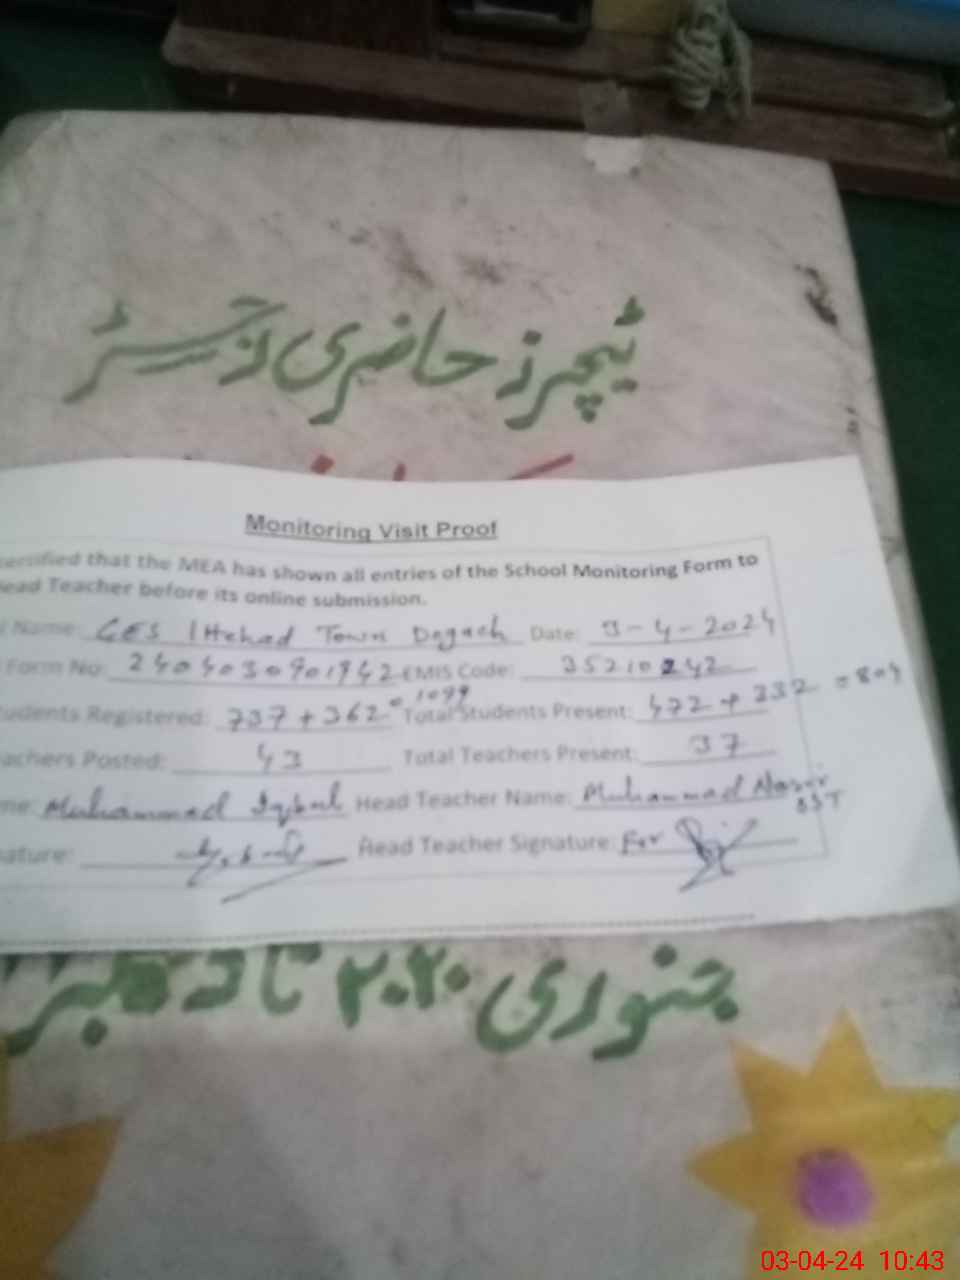 ٹیچرز حاضری رجسٹر
Monitoring Visit Proof
certified that the MEA has shown all entries of the School Monitoring Form to
Head Teacher before its online submission.
Name: GES Ittehad Town Dogach Date: 3-4-2024
Form No: 2404030901942 EMIS Code: 35210242
Students Registered: 737 + 362 = 1099 Total Students Present: 472 + 332 = 804
Teachers Posted: 43 Total Teachers Present: 37
Muhammad Iqbal Head Teacher Name: Muhammad Nasir
SST
Head Teacher Signature: For
جنوری ۲۰۲۰ تا دسمبر
03-04-24 10:43